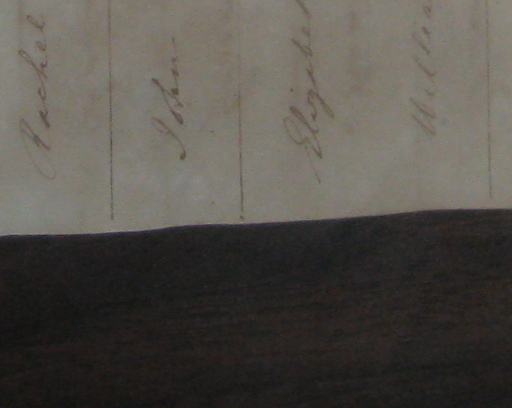 Rachel
John
Elizabet
Willia